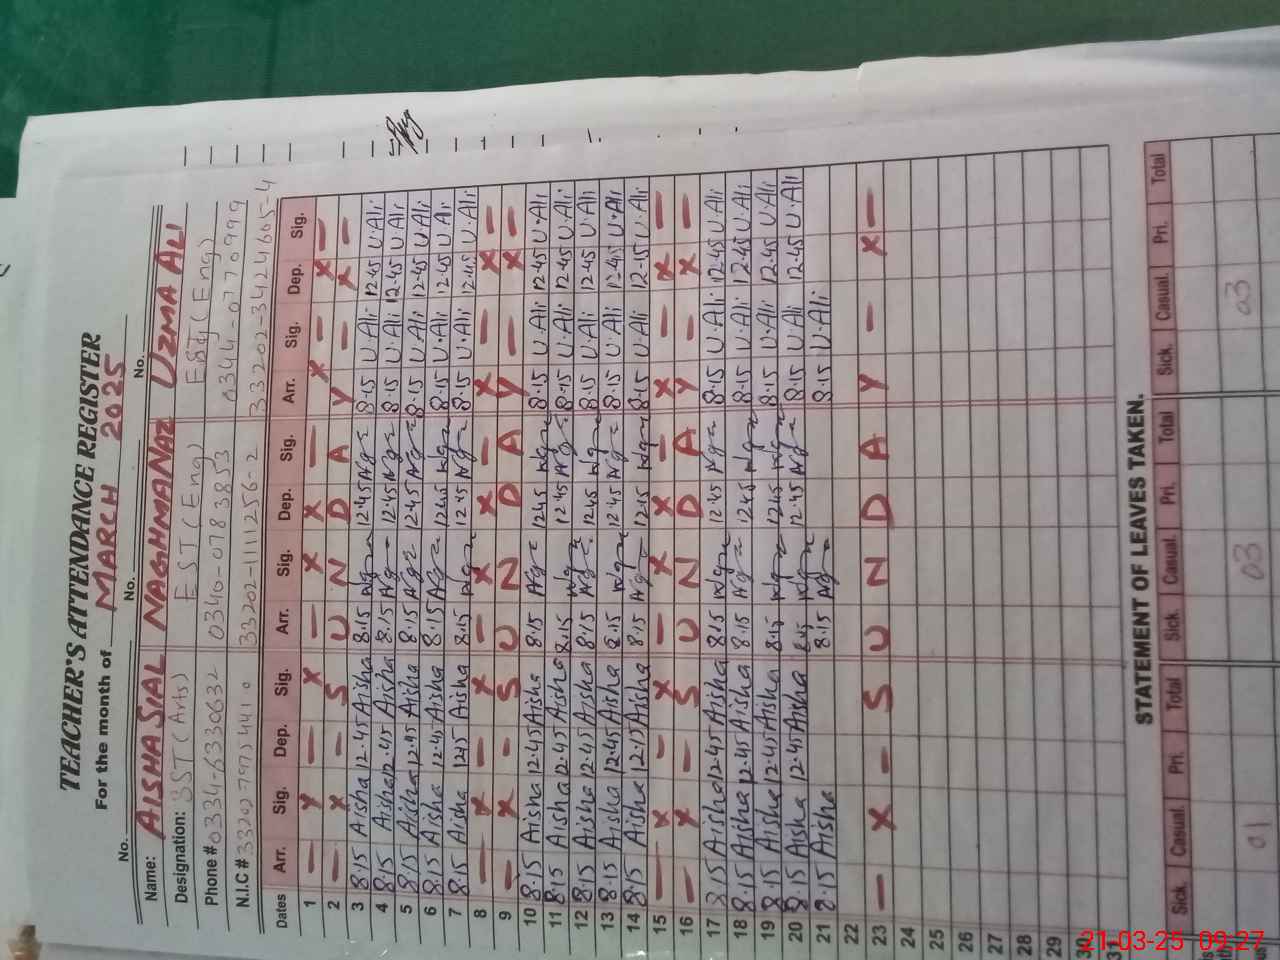 TEACHER'S ATTENDANCE REGISTER
For the month of MARCH 2025
No. No. No.
Name: AISHA SIAL NAGHMANAZ UZMA ALI
Designation: SST (Arts) EST (Eng) ESE (Eng)
Phone # 0334-6330632 0340-0783853 0344-0770999
N.I.C # 33202-1111256-2 33202-3424605-4
Dates Arr. Sig. Dep. Sig. Arr. Sig. Dep. Sig. Arr. Sig. Dep. Sig.
1 — X — X — X X — X — X —
2 — X — S U N D A Y — X —
3 8.15 Aisha 12.45 Aisha 8.15 12.45 8.15 U.Ali 12.45 U.Ali
4 8.15 Aisha 12.45 Aisha 8.15 12.45 8.15 U.Ali 12.45 U.Ali
5 8.15 Aisha 12.45 Aisha 8.15 12.45 8.15 U.Ali 12.45 U.Ali
6 8.15 Aisha 12.45 Aisha 8.15 12.45 8.15 U.Ali 12.45 U.Ali
7 8.15 Aisha 12.45 Aisha 8.15 12.45 8.15 U.Ali 12.45 U.Ali
8 — X — X — X X — X — X —
9 — X — S U N D A Y — X —
10 8.15 Aisha 12.45 Aisha 8.15 12.45 8.15 U.Ali 12.45 U.Ali
11 8.15 Aisha 12.45 Aisha 8.15 12.45 8.15 U.Ali 12.45 U.Ali
12 8.15 Aisha 12.45 Aisha 8.15 12.45 8.15 U.Ali 12.45 U.Ali
13 8.15 Aisha 12.45 Aisha 8.15 12.45 8.15 U.Ali 12.45 U.Ali
14 8.15 Aisha 12.15 Aisha 8.15 12.15 8.15 U.Ali 12.15 U.Ali
15 — X — X — X X — X — X —
16 — X — S U N D A Y — X —
17 8.15 Aisha 12.45 Aisha 8.15 12.45 8.15 U.Ali 12.45 U.Ali
18 8.15 Aisha 12.45 Aisha 8.15 12.45 8.15 U.Ali 12.45 U.Ali
19 8.15 Aisha 12.45 Aisha 8.15 12.45 8.15 U.Ali 12.45 U.Ali
20 8.15 Aisha 12.45 Aisha 8.15 12.45 8.15 U.Ali 12.45 U.Ali
21 8.15 Aisha 8.15 8.15 U.Ali
22
23 — X — S U N D A Y — X —
24
25
26
27
28
29
30
31
STATEMENT OF LEAVES TAKEN.
Sick. Casual. Pri. Total Sick. Casual. Pri. Total Sick. Casual. Pri. Total
01 03 03
21-03-25 09:27